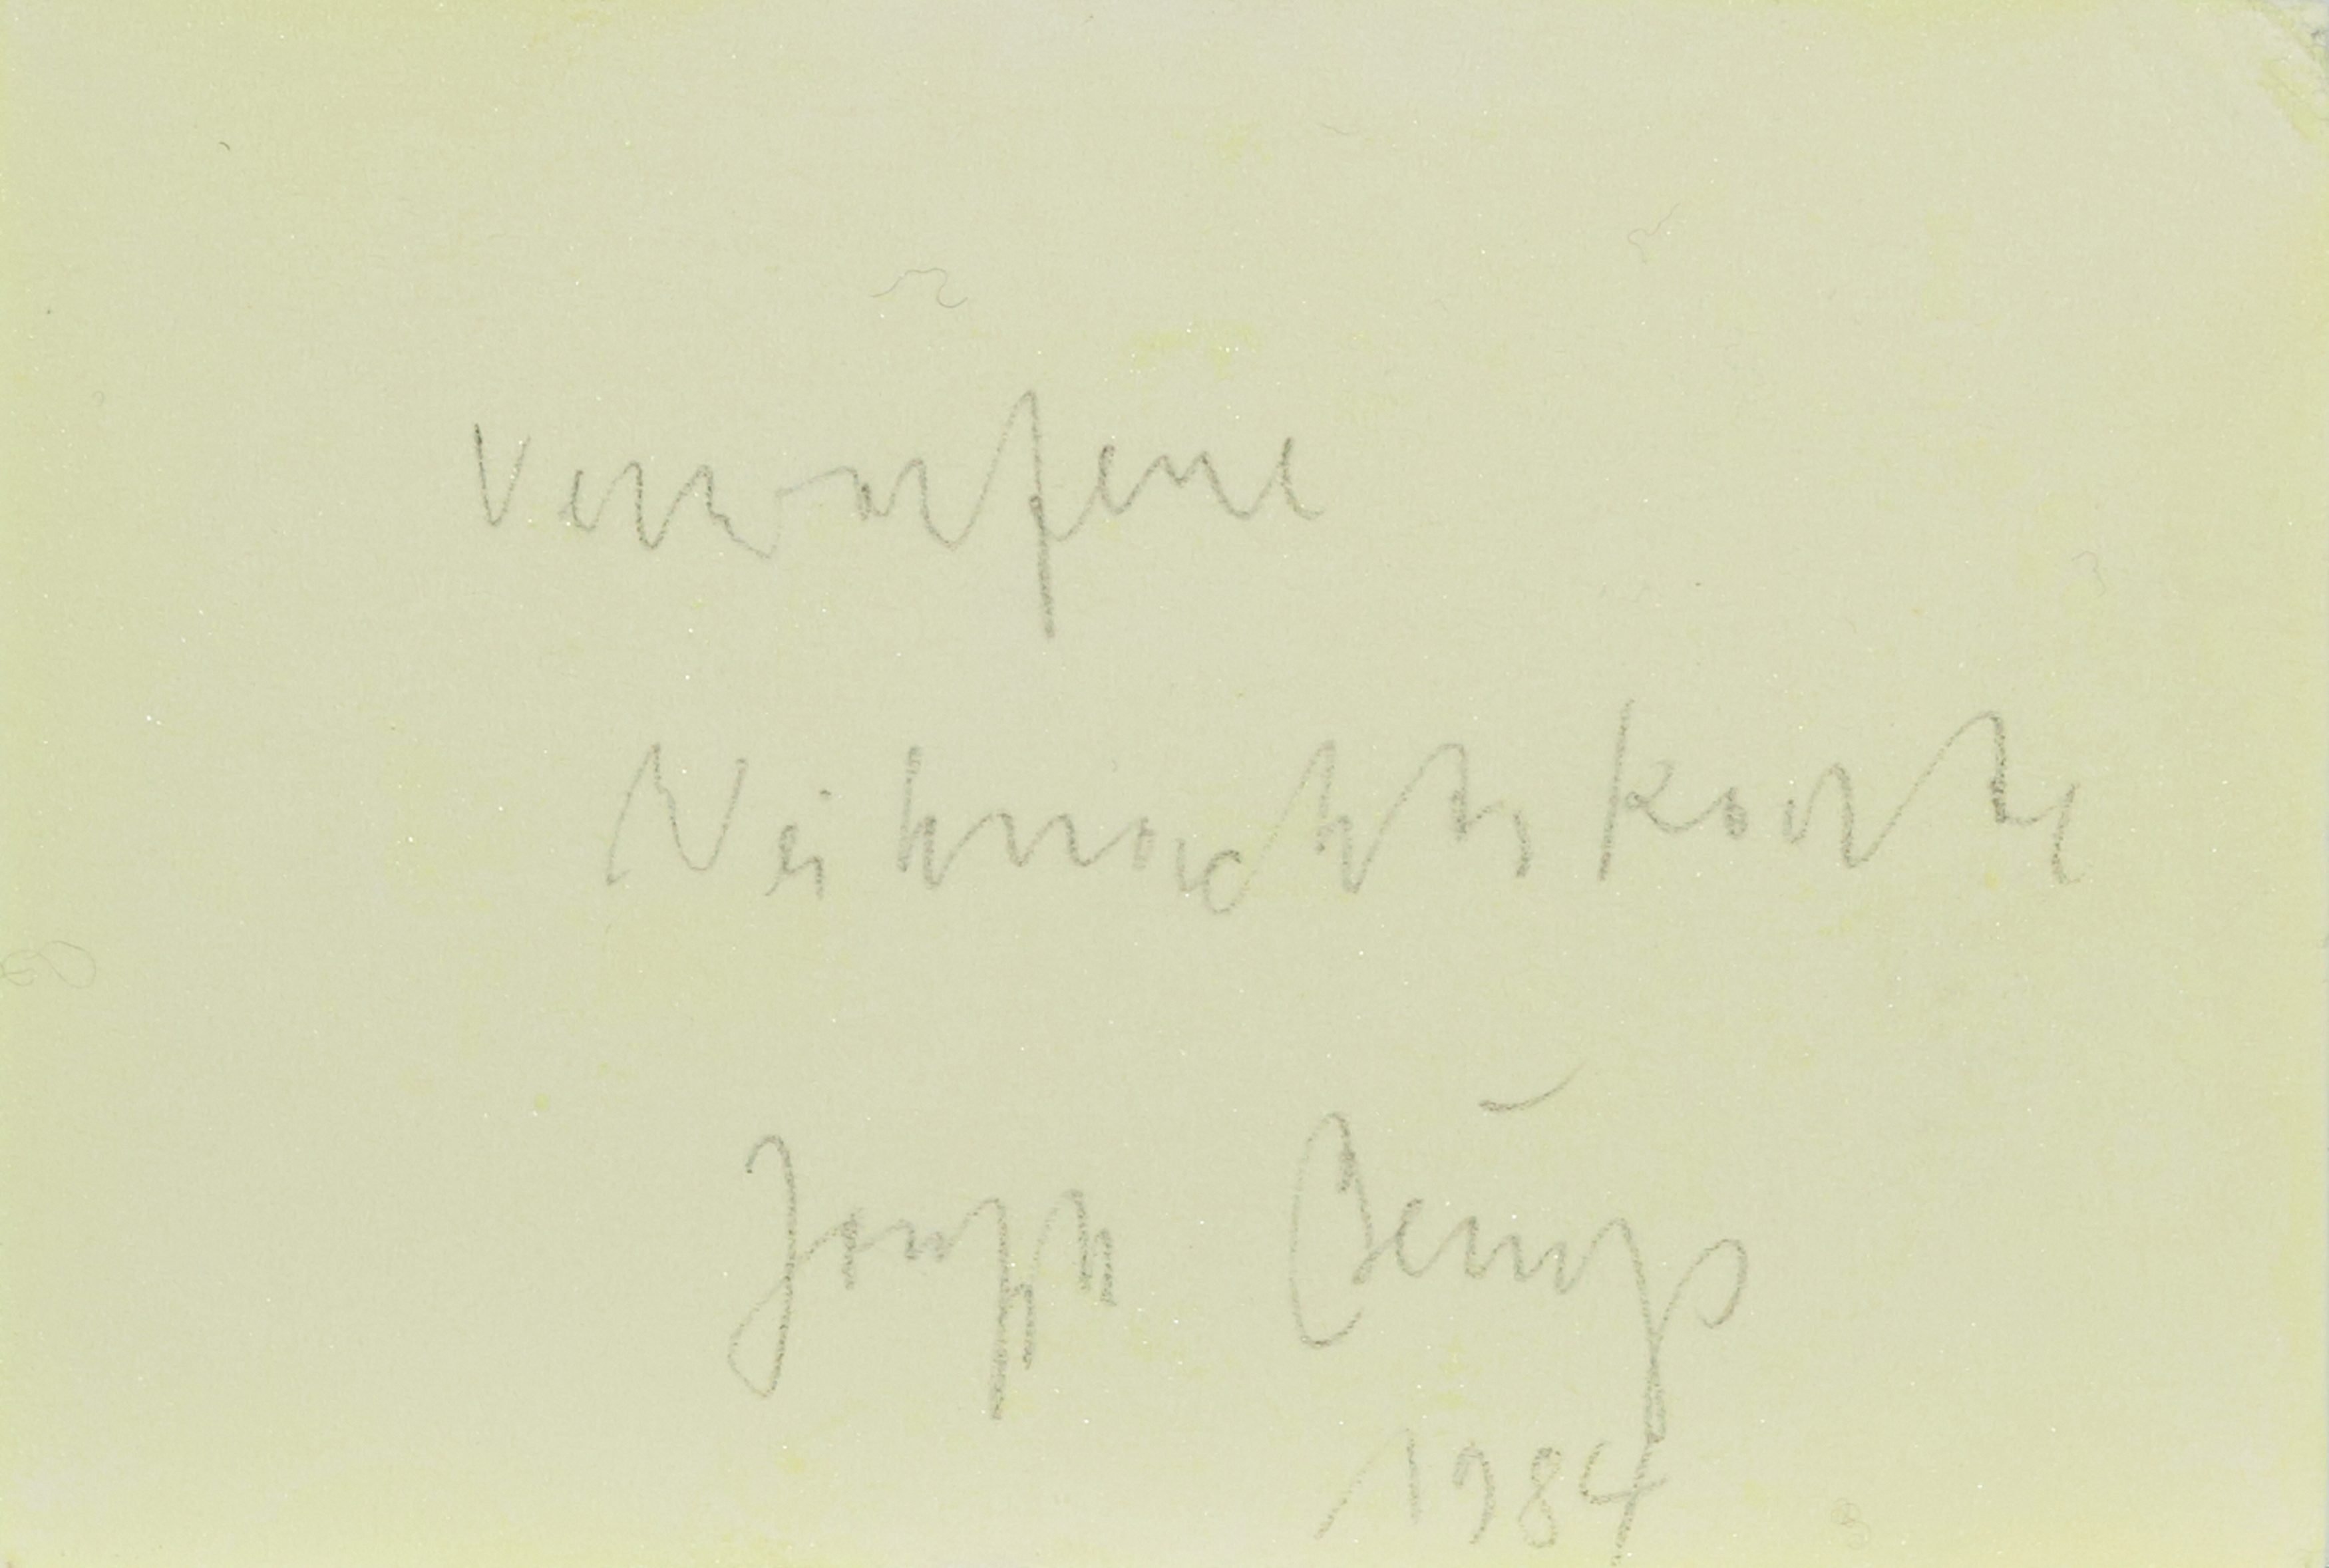 verworfene
Weihnachtskarte
Joseph Beuys
1984